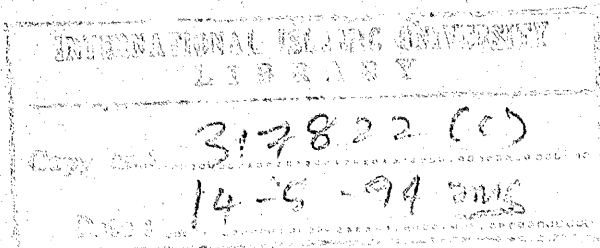 INTERNATIONAL ISLAMIC UNIVERSITY
LIBRARY
Copy no: 317822 (c)
Date: 14-5-94